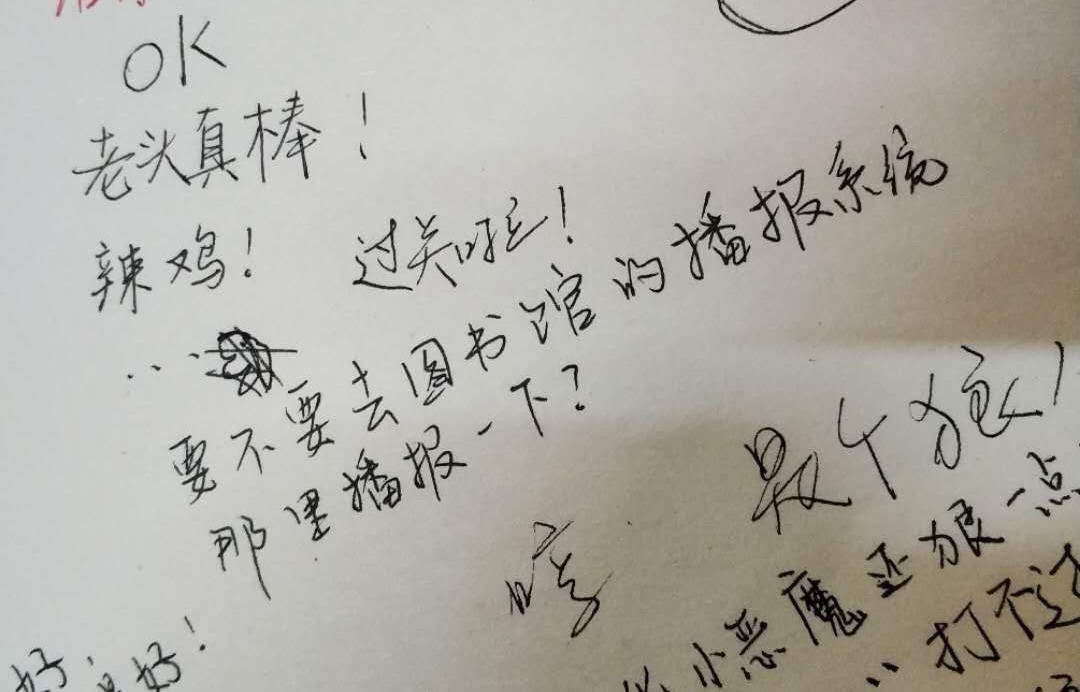 OK
老头真棒！
辣鸡！ 过关啦！
...
要不要去图书馆的播报系统
那里播报一下？
咳
是个狼
小恶魔还狠一点
打不过
好 好！